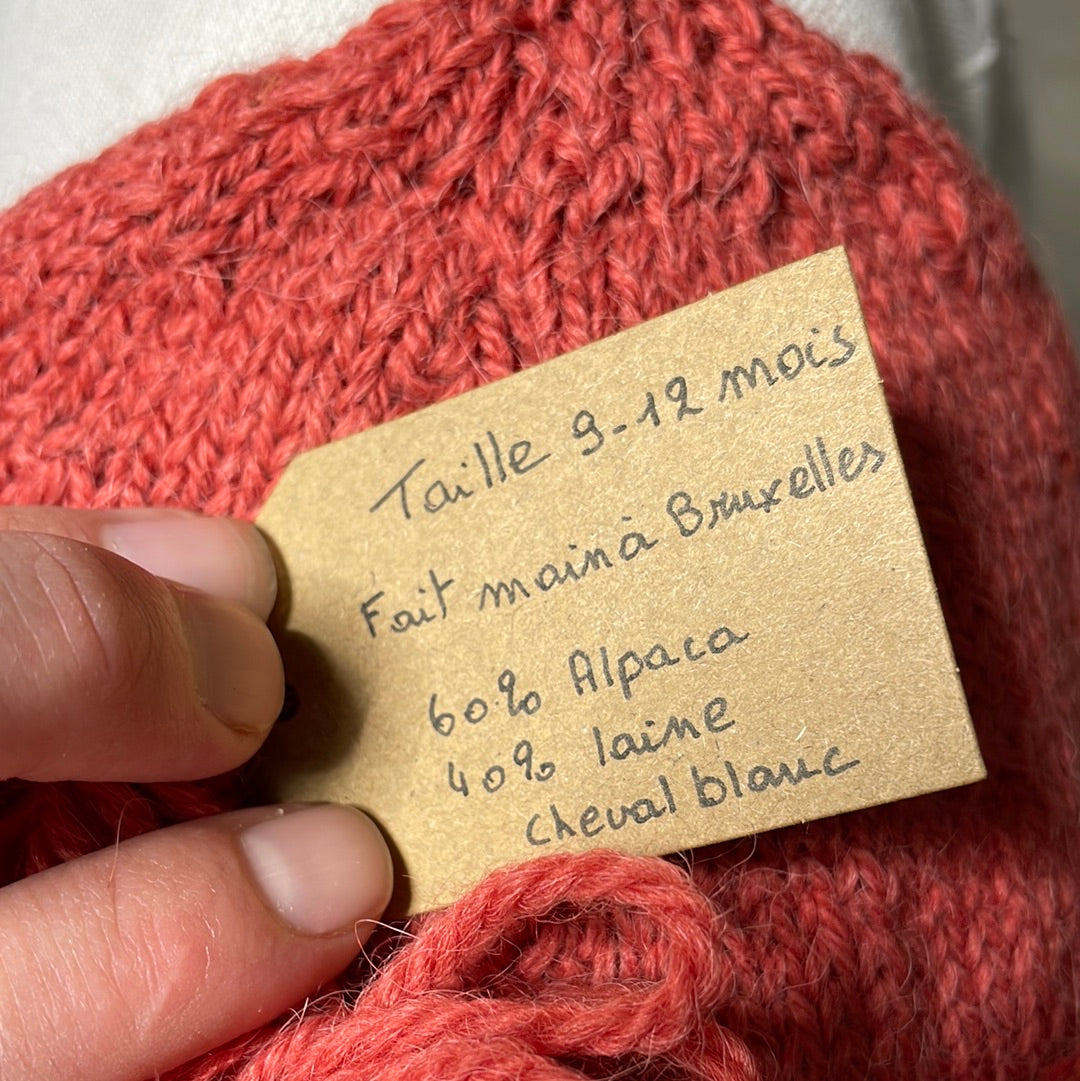 Taille 9-12 mois
Fait main à Bruxelles
60% Alpaca
40% laine
cheval blanc